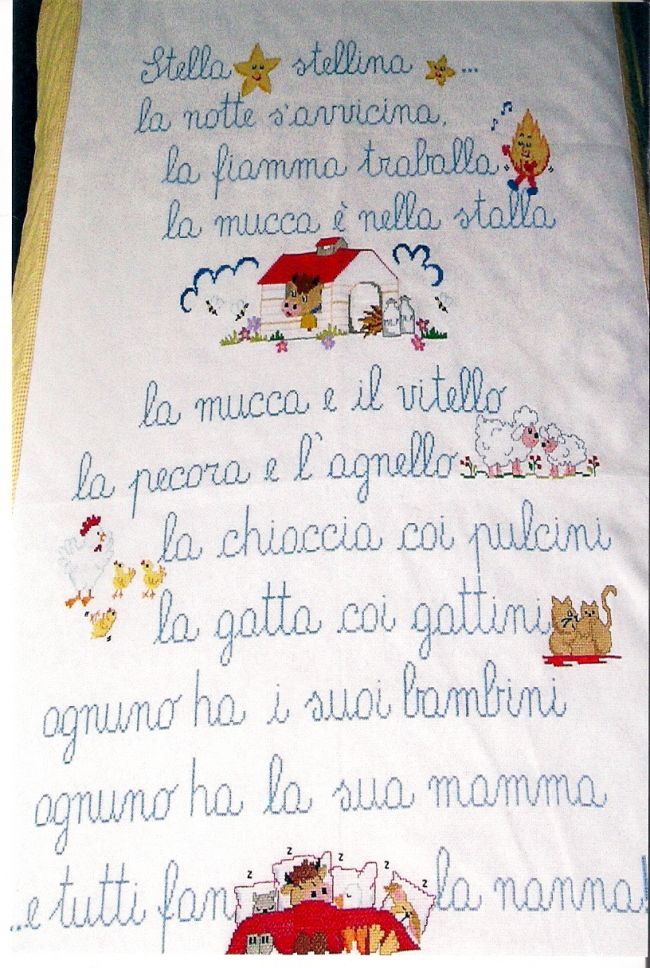 Stella stellina ...
la notte s'avvicina,
la fiamma traballa
la mucca è nella stalla
la mucca e il vitello
la pecora e l'agnello
la chioccia coi pulcini
la gatta coi gattini
ognuno ha i suoi bambini
ognuno ha la sua mamma
z z z z
...e tutti fan la nanna!